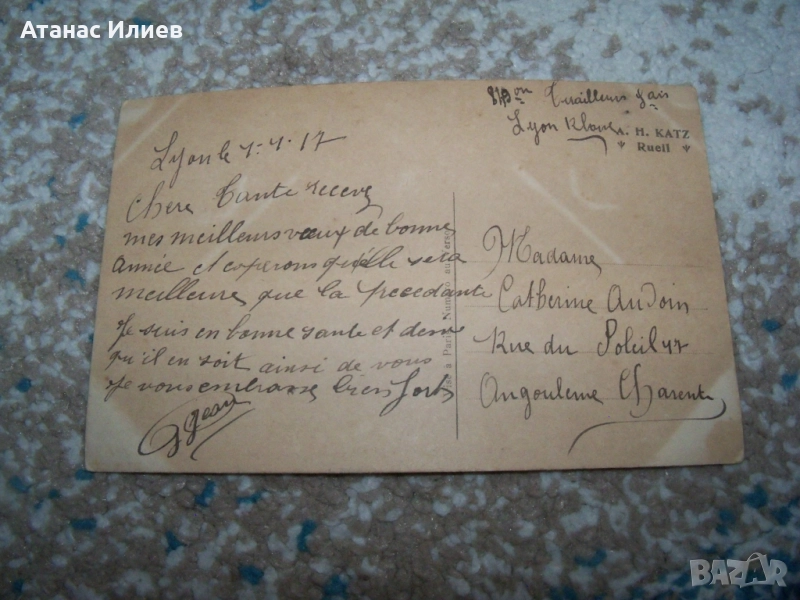 Атанас Илиев
Lyon le 1-1-17
Chere Tante recevez
mes meilleurs vœux de bonne
année et esperons qu'elle sera
meilleure que la precedante
Je suis en bonne santé et désire
qu'il en soit ainsi de vous
Je vous embrasse bien fort
Jean
Lyon
A. H. KATZ
Rueil
Madame
Catherine Audoin
Rue du Soleil 47
Angouleme Charente
à Paris Numéro
BAZAR